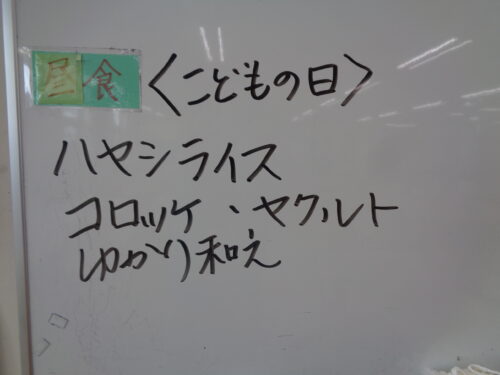 昼食 〈こどもの日〉
ハヤシライス
コロッケ、ヤクルト
ゆかり和え